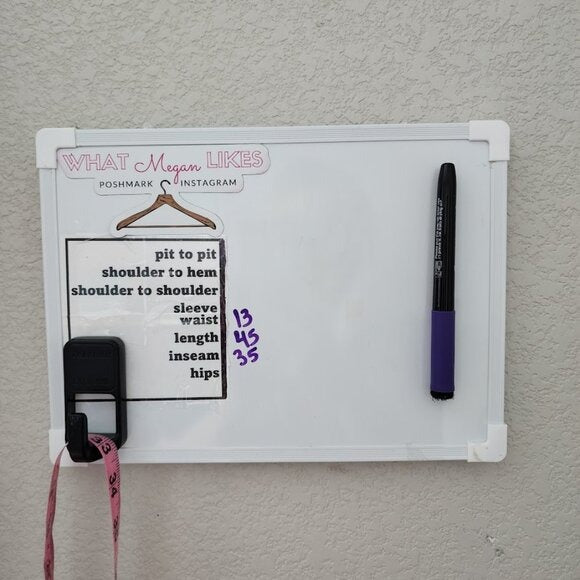 WHAT Megan LIKES
POSHMARK INSTAGRAM
pit to pit
shoulder to hem
shoulder to shoulder
sleeve
waist 13
length 45
inseam 35
hips
33
34